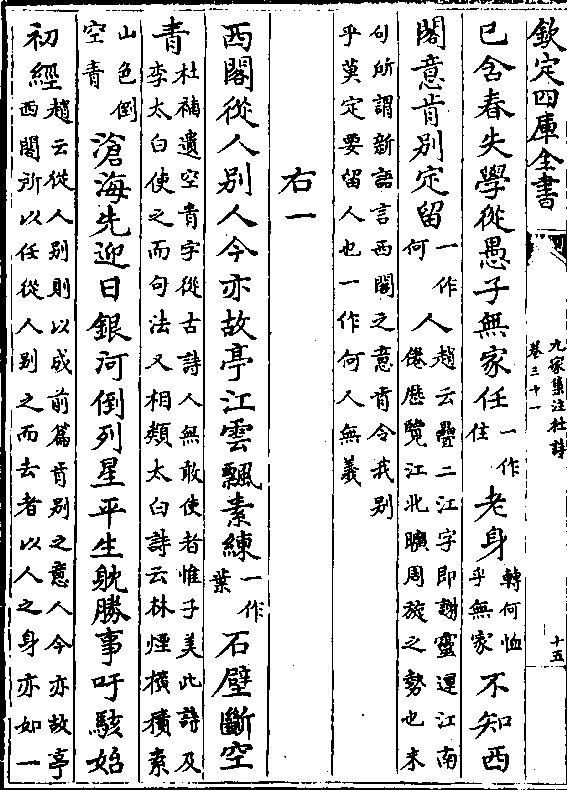 欽定四庫全書
九家集注杜詩
卷三十一
十五
已含春失學從愚子無家任一作住老身轉何恤乎無家不知西
閣意肯别定留一作何人趙云疊二江字即謝靈運江南倦歷覽江北曠周旋之勢也末
句所謂新語言西閣之意肯令我别乎莫定要留人也一作何人無義
右一
西閣從人别人今亦故亭江雲飄素練一作葉石壁斷空
青杜補遺空青字從古詩人無敢使者惟子美此詩及李太白使之而句法又相類太白詩云林煙横積素
山色倒空青滄海先迎日銀河倒列星平生躭勝事吁駭始
初經趙云從人别則以成前篇肯别之意人今亦故亭西閣所以任從人别之而去者以人之身亦如一